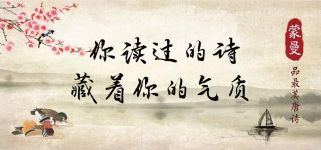 你读过的诗
藏着你的气质
蒙曼
品最美唐诗